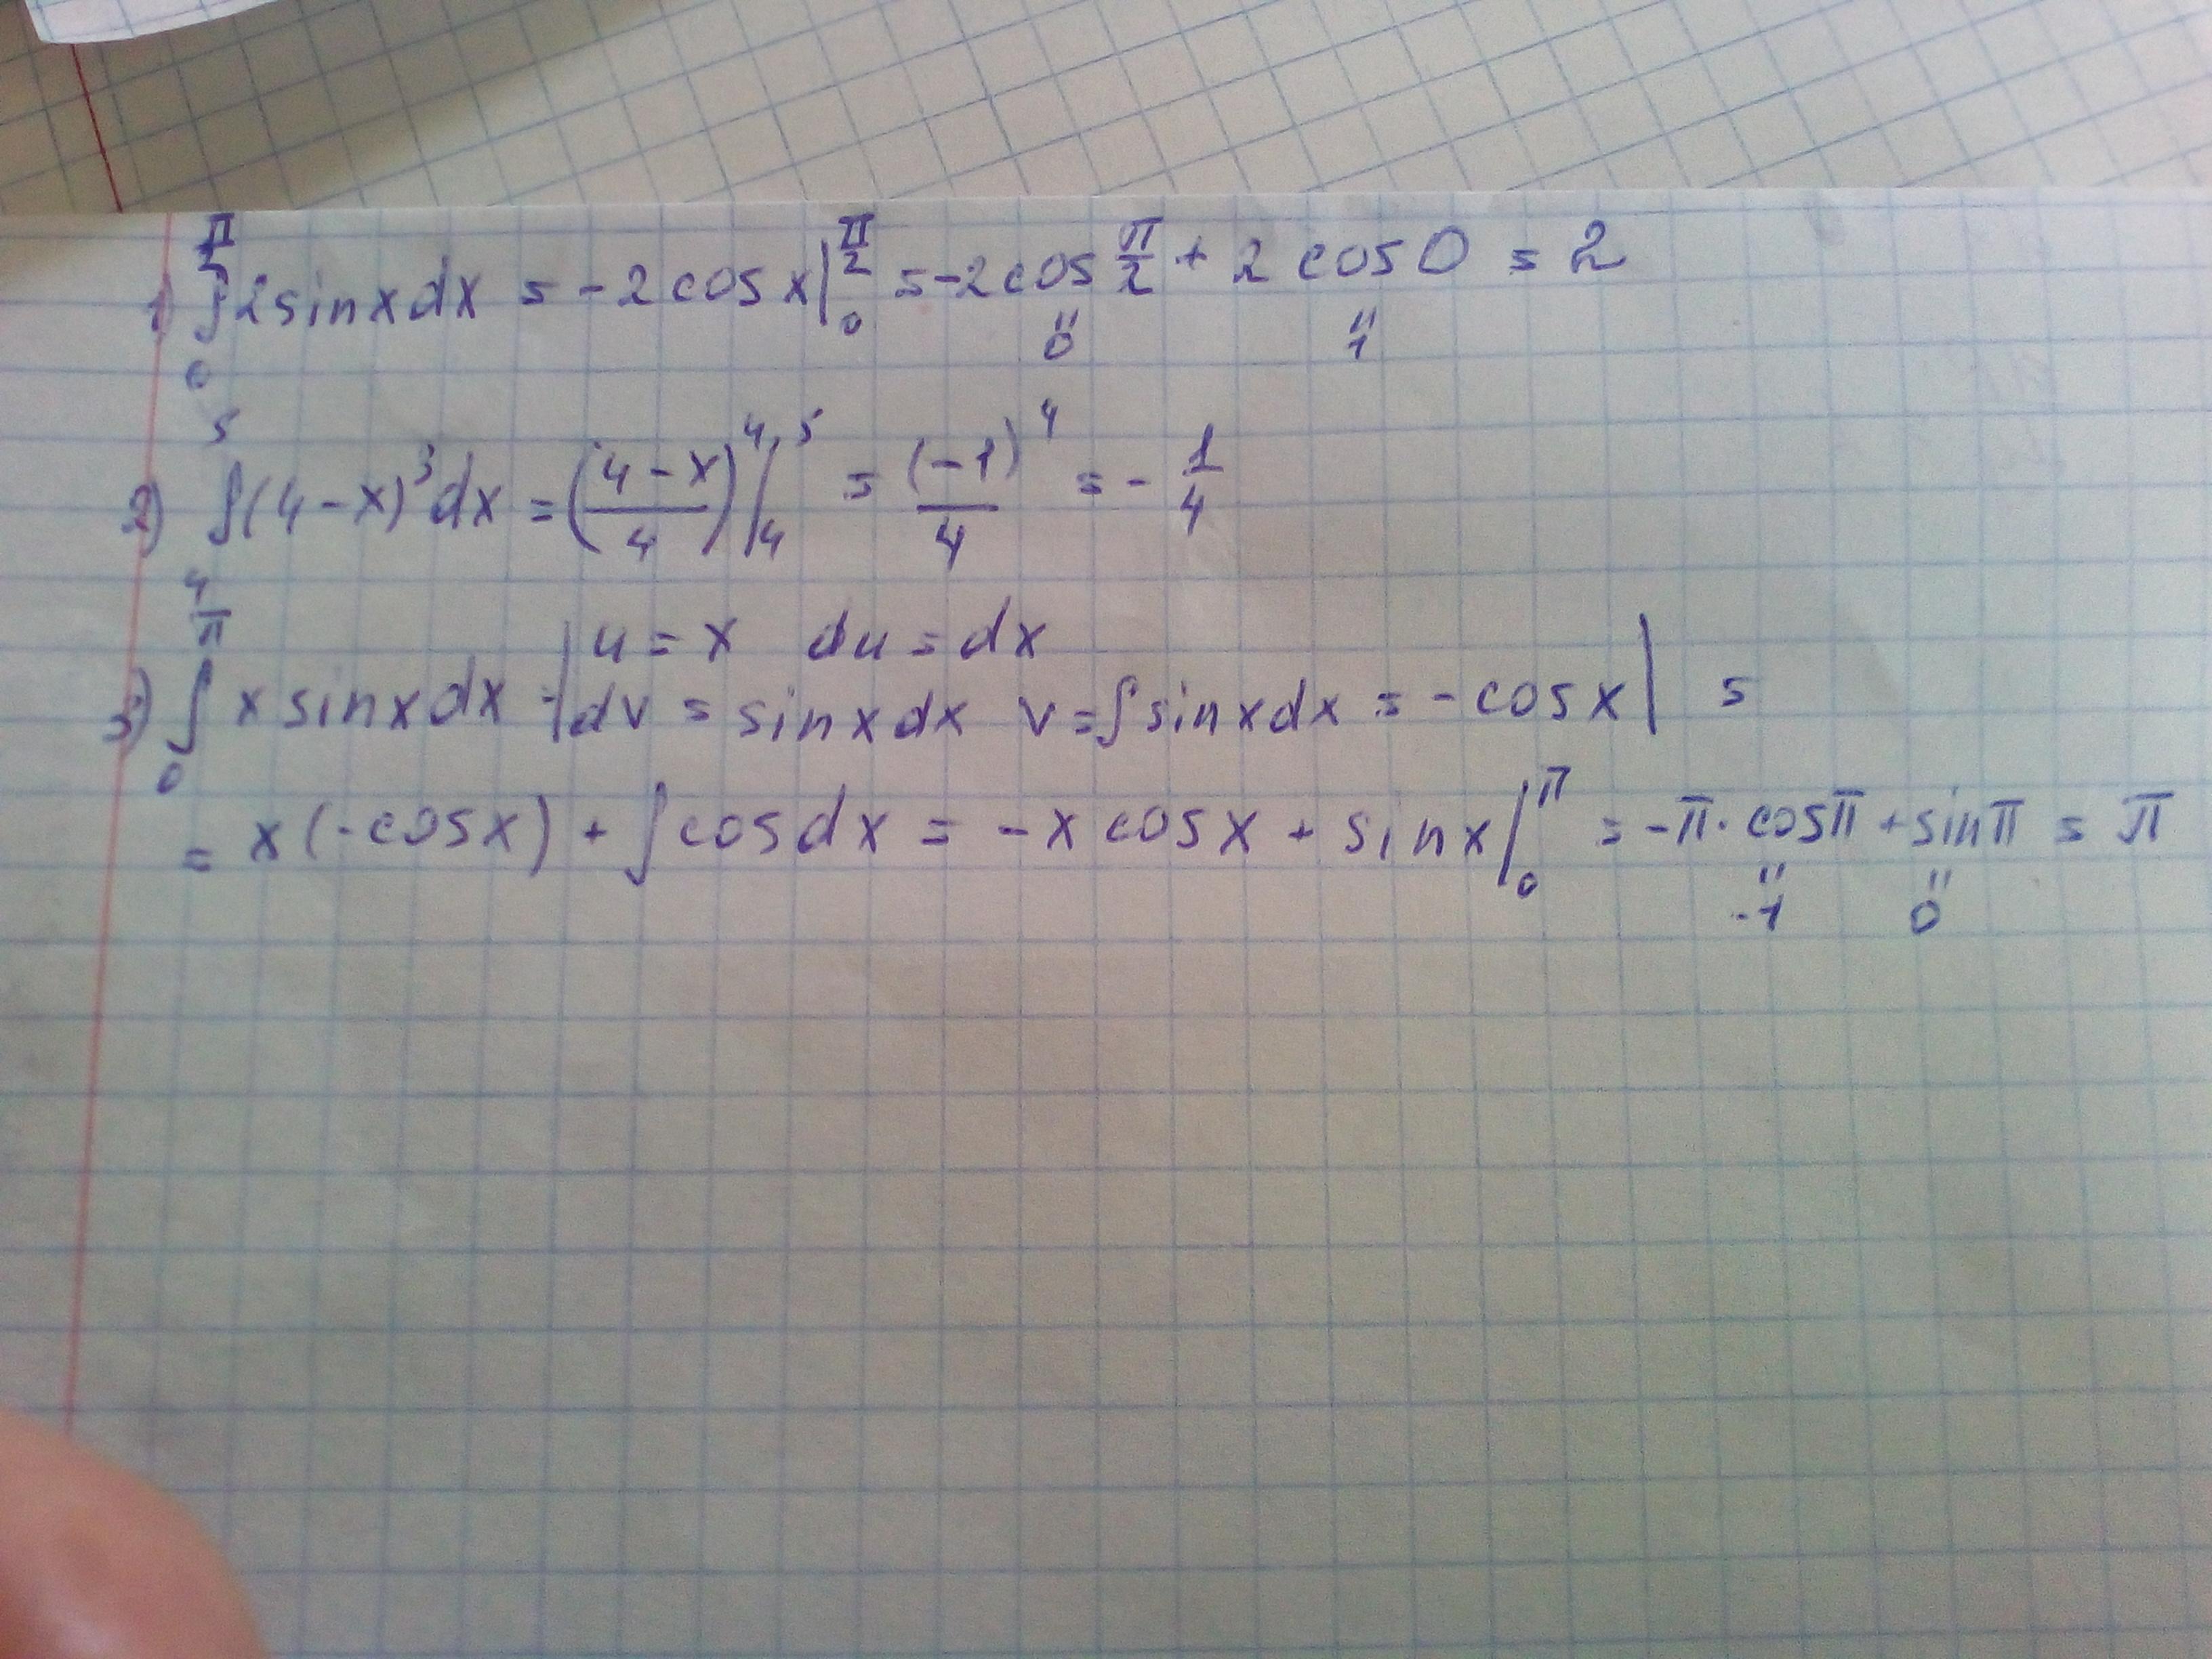 1) ∫₀^(π/2) 2sinxdx = -2cosx|₀^(π/2) = -2cos π/2 + 2cos0 = 2
" 0 " 1
2) ∫₄⁵ (4-x)³dx = ((4-x)/4)⁴|₄⁵ = (-1)⁴/4 = - 1/4
u = x du = dx
3) ∫₀^π x sinxdx = | dv = sinxdx v = ∫sinxdx = -cosx| =
= x(-cosx) + ∫cosdx = -x cosx + sinx|₀^π = -π·cosπ + sinπ = π
" -1 " 0